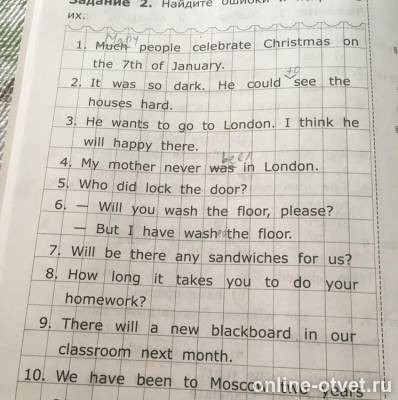 Задание 2. Найдите ошибки и
их.
Many
1. Much people celebrate Christmas on
the 7th of January.
to
2. It was so dark. He could see the
houses hard.
3. He wants to go to London. I think he
will happy there.
been
4. My mother never was in London.
5. Who did lock the door?
6. — Will you wash the floor, please?
— But I have washed the floor.
7. Will be there any sandwiches for us?
8. How long it takes you to do your
homework?
9. There will a new blackboard in our
classroom next month.
10. We have been to Moscow two years
online-otvet.ru